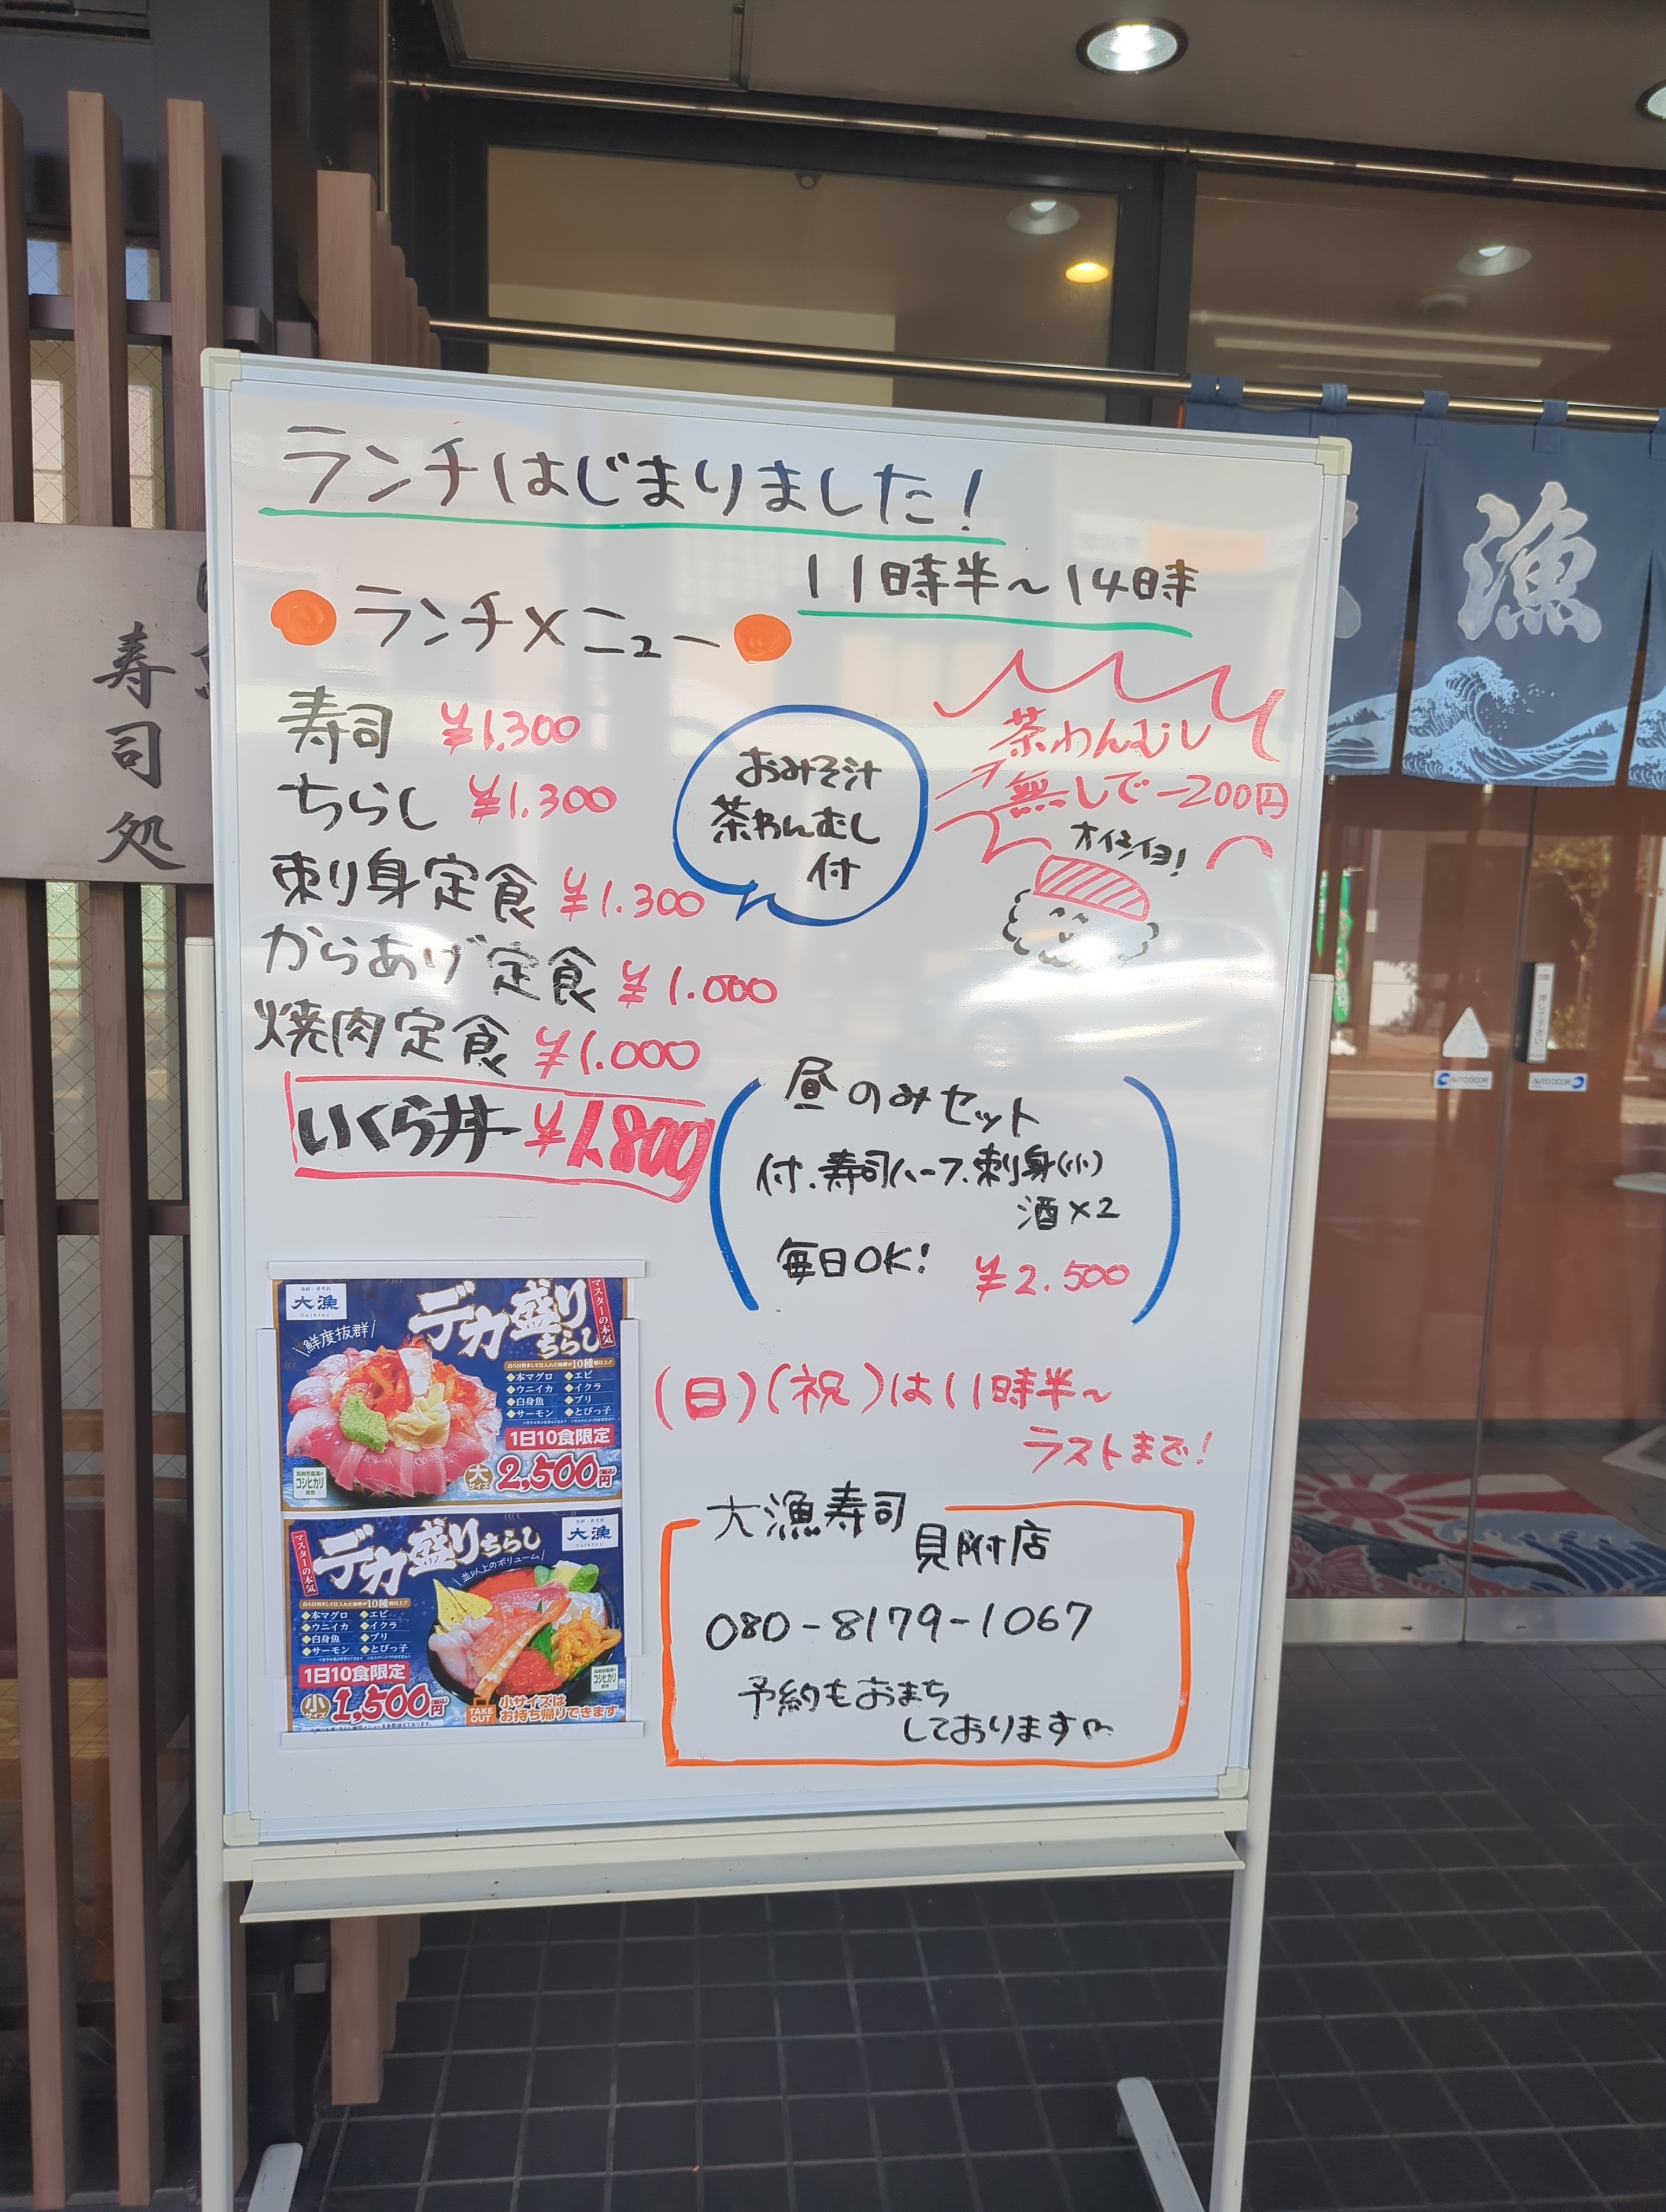 ランチはじまりました!
11時半〜14時
ランチメニュー
寿司 ¥1.300
ちらし ¥1.300
刺り身定食 ¥1.300
からあげ定食 ¥1.000
焼肉定食 ¥1.000
いくら丼 ¥1.800
おみそ汁
茶わんむし
付
茶わんむし
無しで-200円
オイシイヨ!
昼のみセット
付、寿司ハーフ、刺身(小)
酒×2
毎日OK! ¥2.500
(日)(祝)は11時半〜
ラストまで!
大漁寿司
見附店
080-8179-1067
予約もおまち
しております
大漁
鮮度抜群
デカ盛り
ちらし
マスターの本気
10種
◆本マグロ ◆エビ
◆ウニイカ ◆イクラ
◆白身魚 ◆ブリ
◆サーモン ◆とびっ子
1日10食限定
大サイズ 2,500円
コシヒカリ
デカ盛りちらし
大漁
マスターの本気
並以上のボリューム
10種
◆本マグロ ◆エビ
◆ウニイカ ◆イクラ
◆白身魚 ◆ブリ
◆サーモン ◆とびっ子
1日10食限定
小サイズ 1,500円
コシヒカリ
TAKE OUT
小サイズは
お持ち帰りできます
寿司処
漁
AUTO DOOR
AUTO DOOR